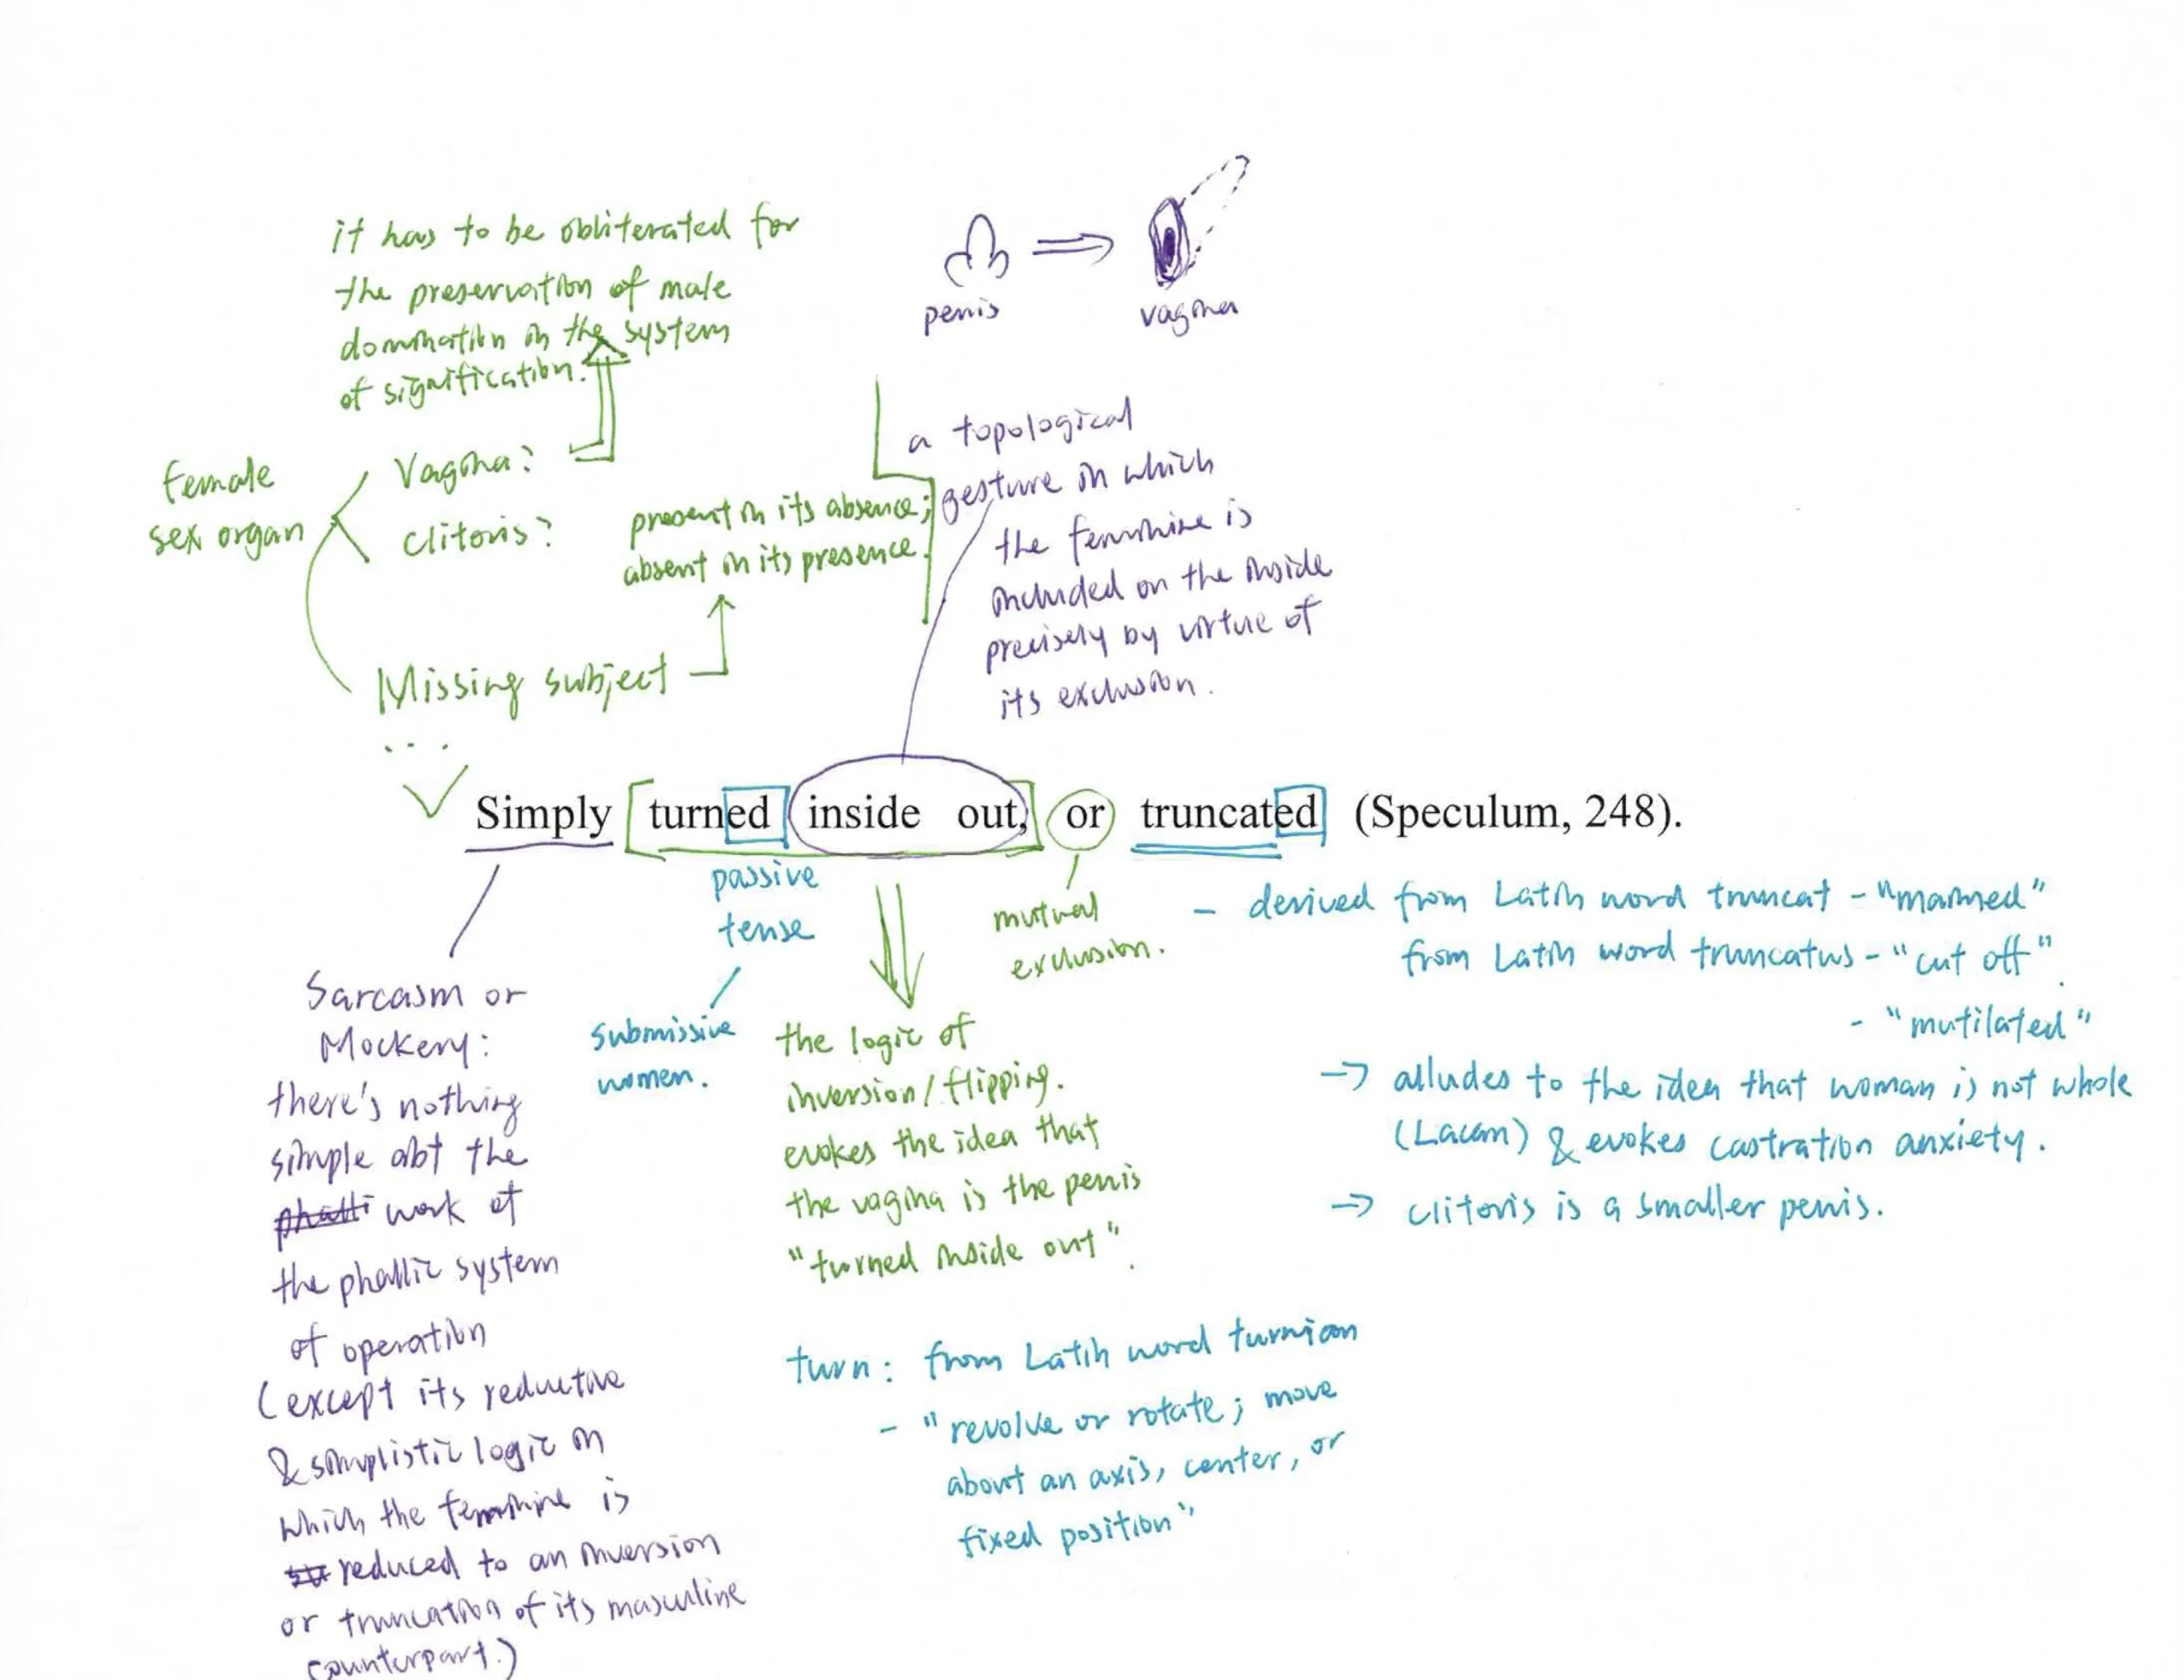 it has to be obliterated for
the preservation of male
domination in the system
of signification.
penis
vagina
female
sex organ
Vagina?
clitoris?
present in its absence;
absent in its presence.
Missing subject
...
a topological
gesture in which
the feminine is
included on the inside
precisely by virtue of
its exclusion.
Simply turned inside out, or truncated (Speculum, 248).
passive
tense
submissive
women.
mutual
exclusion.
- derived from Latin word truncat - "maimed"
from Latin word truncatus - "cut off".
- "mutilated"
→ alludes to the idea that woman is not whole
(Lacan) & evokes castration anxiety.
→ clitoris is a smaller penis.
Sarcasm or
Mockery:
there's nothing
simple abt the
work of
the phallic system
of operation
(except its reductive
& simplistic logic in
which the feminine is
reduced to an inversion
or truncation of its masculine
counterpart.)
the logic of
inversion/flipping.
evokes the idea that
the vagina is the penis
"turned inside out".
turn: from Latin word turnian
- "revolve or rotate; move
about an axis, center, or
fixed position"